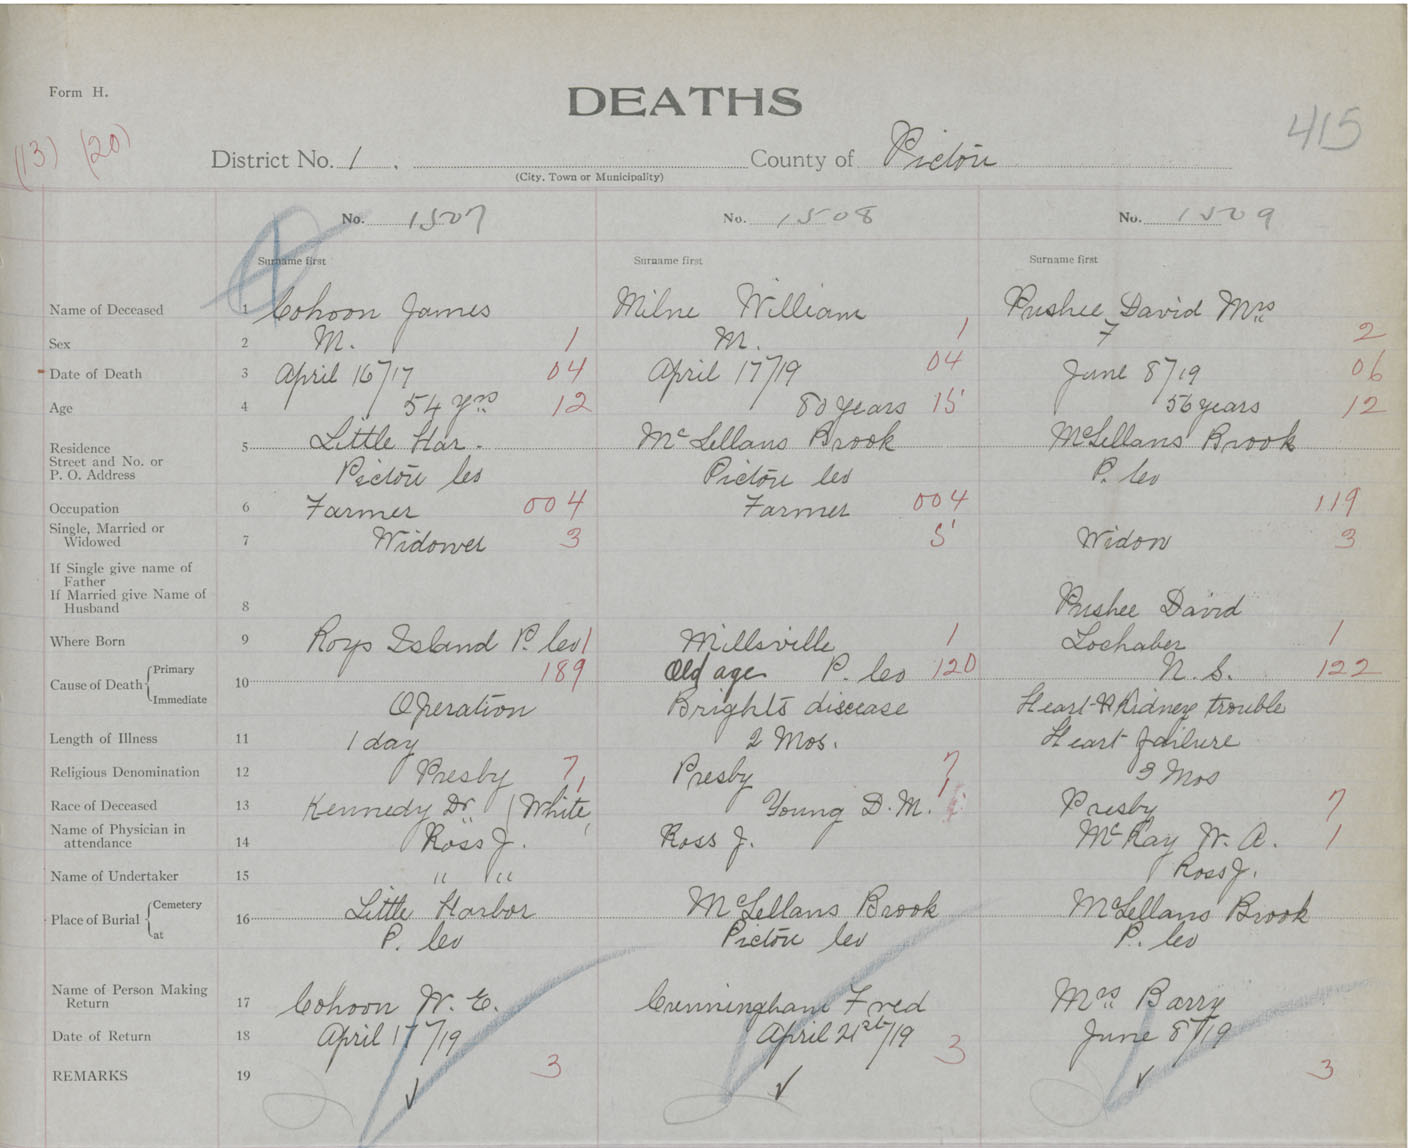 Form H.
DEATHS
415
(13) (20)
District No. 1. County of Pictou
(City, Town or Municipality)
No. 1507 No. 1508 No. 1509
Surname first Surname first Surname first
Name of Deceased 1 Cohoon James Milne William Pushee David Mrs
Sex 2 M. 1 M. 1 F 2
Date of Death 3 April 16/17 04 April 17/19 04 June 8/19 06
Age 4 54 yrs 12 80 years 15 56 years 12
Residence 5 Little Har. McLellans Brook McLellans Brook
Street and No. or
P. O. Address Pictou Co Pictou Co P. Co
Occupation 6 Farmer 004 Farmer 004 119
Single, Married or
Widowed 7 Widower 3 5 Widow 3
If Single give name of
Father
If Married give Name of
Husband 8 Pushee David
Where Born 9 Roys Island P. Co 1 Millsville 1 Lochaber 1
Cause of Death Primary 10 189 Old age P. Co 120 N. S. 122
Immediate Operation Brights disease Heart & Kidney trouble
Length of Illness 11 1 day 2 Mos. Heart failure
Religious Denomination 12 Presby 7 Presby 7 3 Mos
Race of Deceased 13 Kennedy Dr. White 1 Young D. M. 1 Presby 7
Name of Physician in
attendance 14 Ross J. Ross J. McKay W. A. 1
Name of Undertaker 15 " " Ross J.
Place of Burial Cemetery 16 Little Harbor McLellans Brook McLellans Brook
at P. Co Pictou Co P. Co
Name of Person Making
Return 17 Cohoon W. E. Cunningham Fred Mrs Barry
Date of Return 18 April 17/19 April 21st/19 June 8/19
REMARKS 19 3 3 3